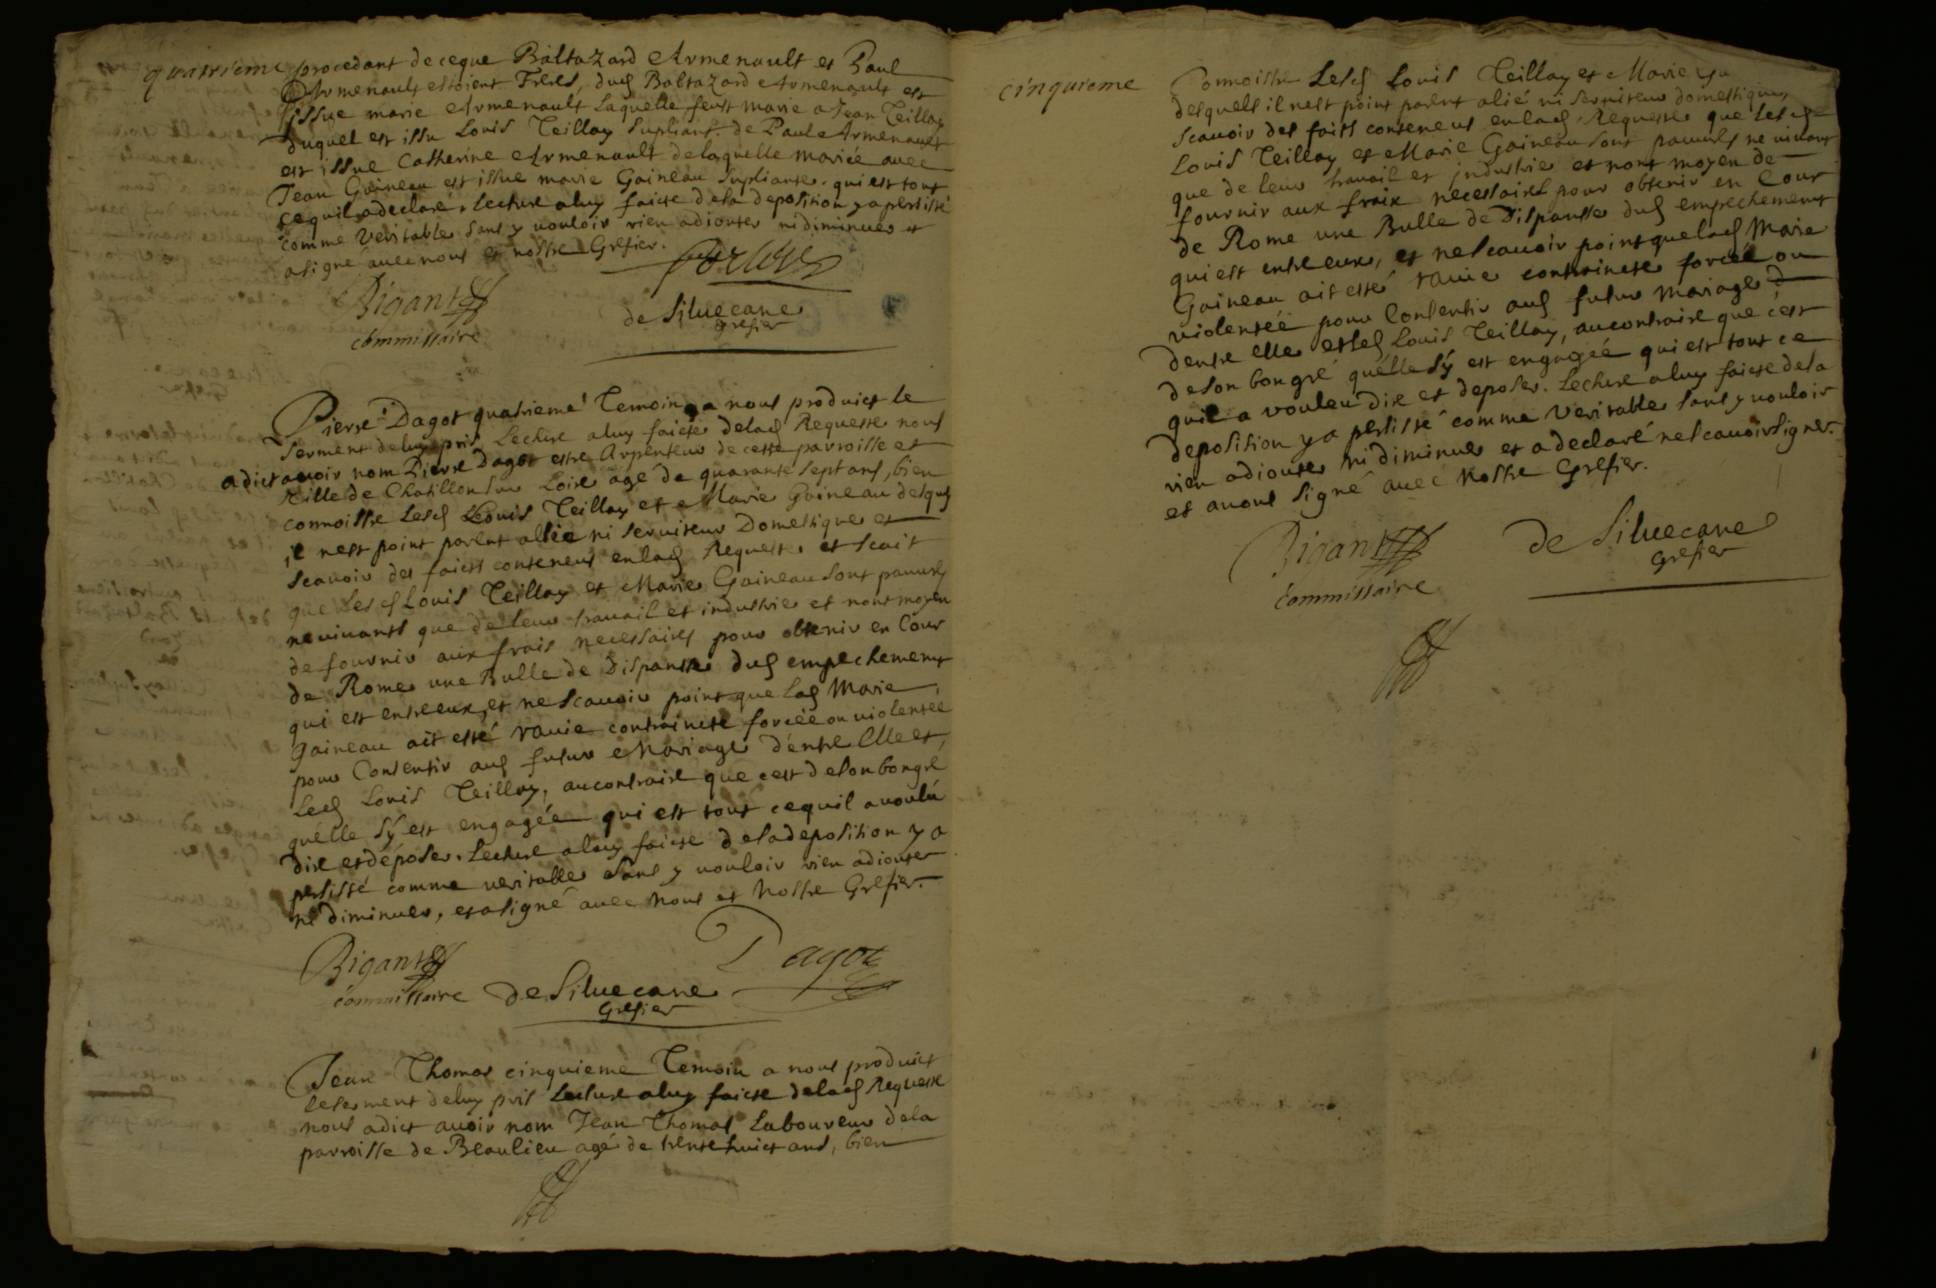 quatrieme procedant de ceque Baltazard Armenault et Paul
Armenault estoient Freres, dud Baltazard Armenault est
issue marie Armenault laquelle feust marie a Jean Teillay
duquel est issu Louis Teillay supliant. de Paul Armenault
est issue Catherine Armenault de laquelle mariée avec
Jean Gaineau est issue marie Gaineau supliante. qui est tout
ce quil a declaré. lecture a luy faicte de sa deposition y a persisté
comme veritable sans y vouloir rien adiouter ni diminuer et
a signé avec nous et nostre Grefier.
Bigant
commissaire
de Siluecane
grefier
Pierre Dagot quatrieme Temoin a nous produict le
serment de luy pris Lecture a luy faicte delad Requeste nous
a dict avoir nom Pierre Dagot estre Arpenteur de cette parroisse et
Ville de Chatillon sur Loire agé de quarante sept ans, bien
connoistre Lesd Louis Teillay et Marie Gaineau desqls
il nest point parent allié ni seruiteur Domestique et
scauoir des faicts conteneus enlad Requeste. et scait
que lesd Louis Teillay et Marie Gaineau sont pauures
ne uiuants que de leur trauail et industrie et nont moyen
de fournir aux frais necessaires pour obtenir en Cour
de Rome une Bulle de Dispanse dud empechement
qui est entre eux, et ne scauoir point que lad Marie
Gaineau ait esté rauie contraincte forcée ou violentée
pour Consentir aud futur Mariage d'entre Elle et
Led Louis Teillay, au contraire que cest de son bongré
quélle sÿ est engagée qui est tout cequil a voulu
dire et déposer. Lecture a luy faicte de sa deposition y a
persisté comme veritable sans y uouloir rien adiouter
ne diminuer, et a signé avec nous et Nostre Grefier.
Bigant
Dagot
commissaire de Siluecane
Grefier
Jean Thomas cinquieme Temoin a nous produict
le serment de luy pris Lecture a luy faicte delad Requeste
nous a dict avoir nom Jean Thomas Laboureur de la
parroisse de Beaulieu agé de trente huict ans, bien
cinquieme Connoistre Lesd Louis Teillay et Marie
desquels il nest point parent alié ni seruiteur domestique
scauoir des faits conteneus enlad Requeste que lesd
Louis Teillay et Marie Gaineau sont pauures ne uiuant
que de leur trauail et industrie et nont moyen de
fournir aux fraix necessaires pour obtenir en Cour
de Rome une Bulle de Dispansse dud empechement
qui est entre eux, et ne scauoir point que lad Marie
Gaineau ait esté rauie contraincte forcée ou
violentée pour Consentir aud futur Mariage
dentre elle et led Louis Teillay, au contraire que cest
de son bongré quélle sÿ est engagée qui est tout ce
quil a vouleu dire et deposer. Lecture a luy faicte de sa
deposition y a persisté comme veritable sans y uouloir
rien adiouter ni diminuer et a declaré ne scauoir signer.
et auons signé avec Nostre Grefier.
Bigant
de Siluecane
commissaire
grefier